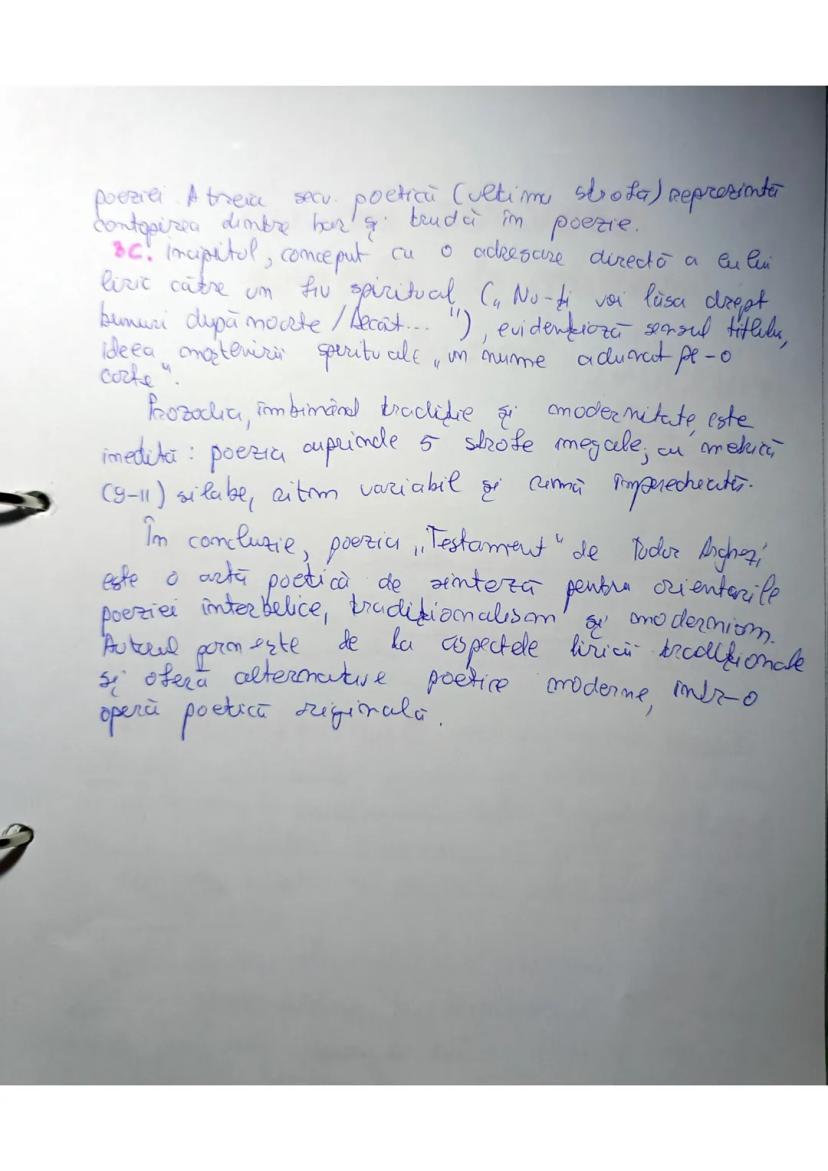 poeziei. A treia secv. poetică (ultima strofă) reprezintă
contopirea dintre har și trudă în poezie.
3C. incipitul, conceput cu o adresare directă a eului
liric către un fiu spiritual („Nu-ți voi lăsa drept
bunuri după moarte / Decât... "), evidențiază sensul titlului,
ideea moștenirii spirituale „un nume adunat pe-o
carte".
Prozodia, îmbinând tradiție și modernitate, este
inedită: poezia cuprinde 5 strofe inegale, cu metrică
(9-11) silabe, ritm variabil și rimă împerecheată.
În concluzie, poezia „Testament" de Tudor Arghezi,
este o artă poetică de sinteză pentru orientările
poeziei interbelice, tradiționalism și modernism.
Autorul pornește de la aspectele liricii tradiționale
și oferă alternative poetice moderne, într-o
operă poetică originală.